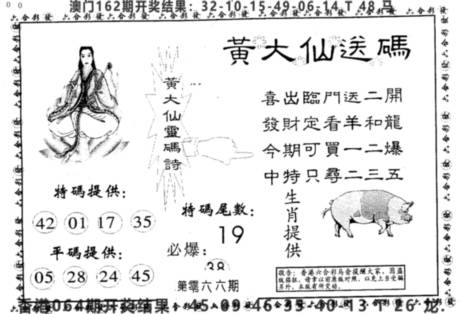 澳门162期开奖结果：32-10-15-49-06-14 T 48 马
黃大仙送碼
黃大仙靈碼詩
喜出臨門送二開
發財定看羊和龍
今期可買一二爆
中特只尋二三五
特码提供：
42 01 17 35
平码提供：
05 28 24 45
特码尾數：
19
必爆：
38
第零六六期
生肖提供
香港064期开奖结果：45-09-46-33-40-13 T 26 龙